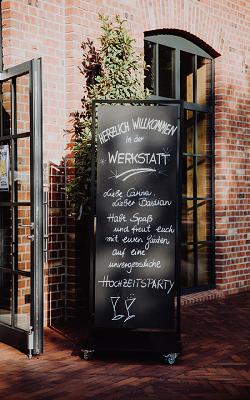 HERZLICH WILLKOMMEN
in der
WERKSTATT
Liebe Carina,
Lieber Bastian
Habt Spaß
und freut euch
mit euren Gästen
auf eine
unvergessliche
HOCHZEITSPARTY